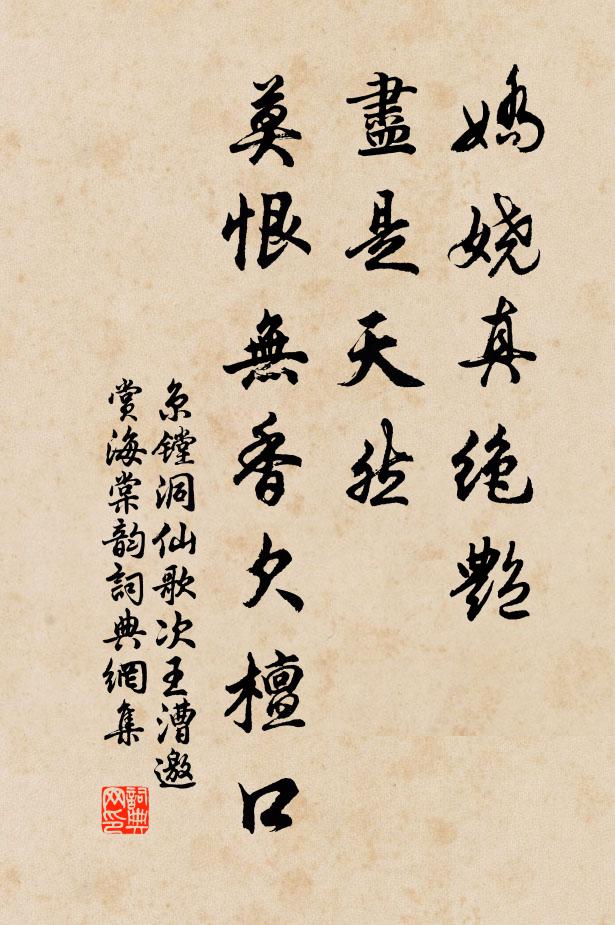 嬌嬈真絶艷
盡是天然
莫恨無香欠檀口
京鏜洞仙歌次王漕邀
賞海棠韵詞典網集
詞典网印